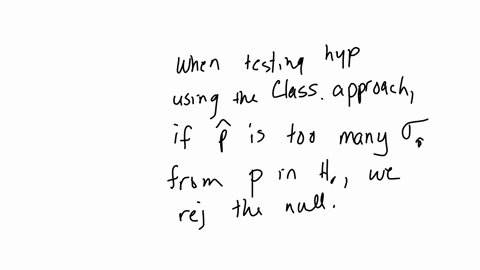 When testing hyp
using the Class. approach,
if p̂ is too many σ
from p in H₀, we
rej the null.